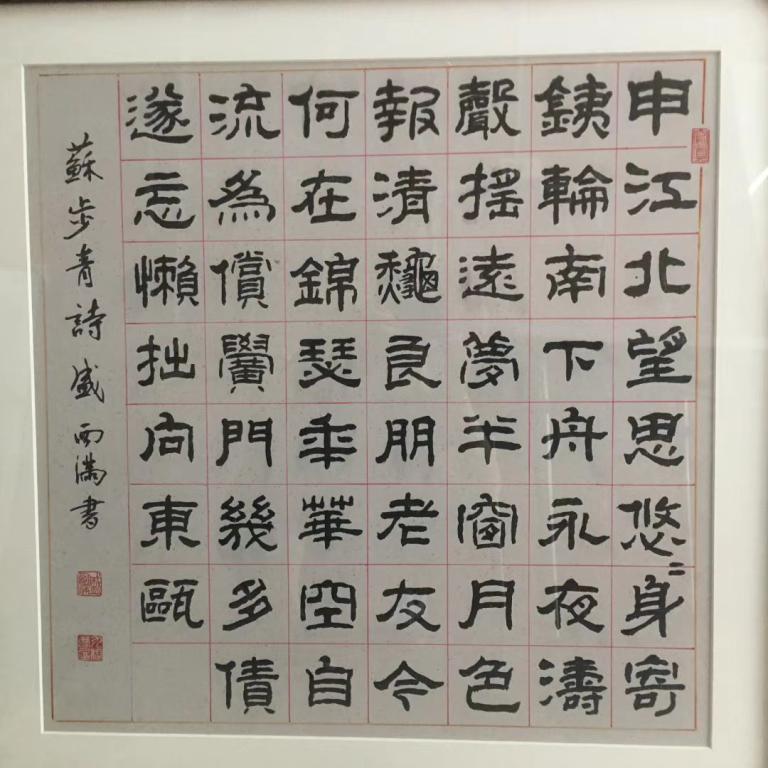 申江北望思悠〻身寄
銕輪南下舟永夜濤
聲搖遠夢半窗月色
報清龝良朋老友今
何在錦瑟秊華空自
流為償黌門幾多債
遂忘懶拙向東甌
蘇步青詩盛西滿書